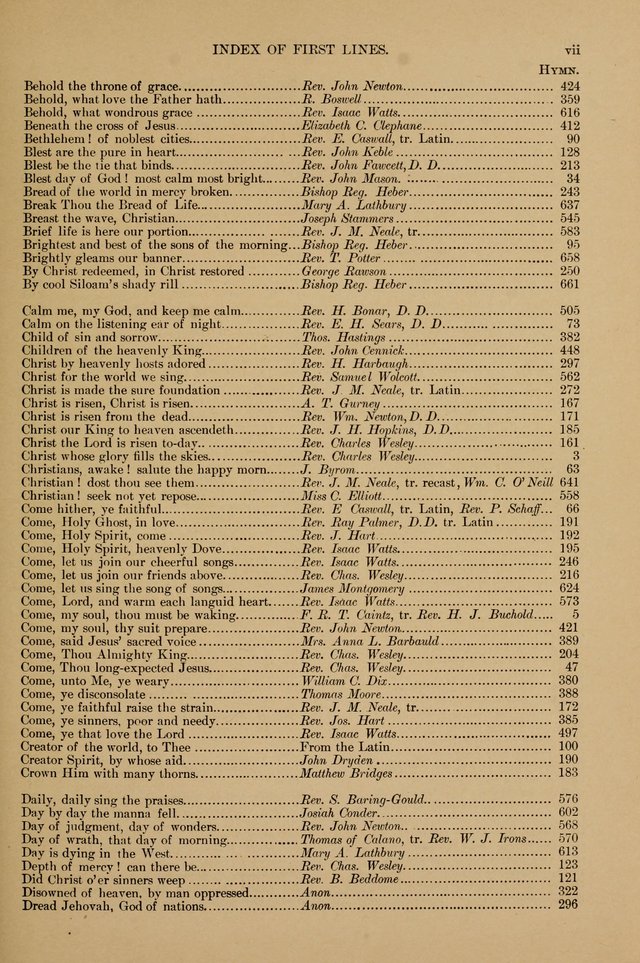 INDEX OF FIRST LINES. vii
HYMN.
Behold the throne of grace.............................Rev. John Newton.................................... 424
Behold, what love the Father hath..................R. Boswell............................................ 359
Behold, what wondrous grace ........................Rev. Isaac Watts...................................... 616
Beneath the cross of Jesus.............................Elizabeth C. Clephane............................. 412
Bethlehem ! of noblest cities..........................Rev. E. Caswall, tr. Latin....................... 90
Blest are the pure in heart.............................Rev. John Keble..................................... 128
Blest be the tie that binds..............................Rev. John Fawcett, D. D.......................... 213
Blest day of God ! most calm most bright........Rev. John Mason.................................... 34
Bread of the world in mercy broken................Bishop Reg. Heber.................................. 243
Break Thou the Bread of Life.........................Mary A. Lathbury.................................. 637
Breast the wave, Christian.............................Joseph Stammers.................................... 545
Brief life is here our portion...........................Rev. J. M. Neale, tr................................ 583
Brightest and best of the sons of the morning...Bishop Reg. Heber................................. 95
Brightly gleams our banner............................Rev. T. Potter ....................................... 658
By Christ redeemed, in Christ restored ............George Rawson ..................................... 250
By cool Siloam's shady rill .............................Bishop Reg. Heber ................................ 661
Calm me, my God, and keep me calm..............Rev. H. Bonar, D. D............................... 505
Calm on the listening ear of night...................Rev. E. H. Sears, D. D............................ 73
Child of sin and sorrow..................................Thos. Hastings ...................................... 382
Children of the heavenly King........................Rev. John Cennick.................................. 448
Christ by heavenly hosts adored .....................Rev. H. Harbaugh................................... 297
Christ for the world we sing...........................Rev. Samuel Wolcott............................... 562
Christ is made the sure foundation ..................Rev. J M. Neale, tr. Latin........................ 272
Christ is risen, Christ is risen..........................A. T. Gurney ........................................ 167
Christ is risen from the dead...........................Rev. Wm. Newton, D. D.......................... 171
Christ our King to heaven ascendeth................Rev. J. H. Hopkins, D. D......................... 185
Christ the Lord is risen to-day.........................Rev. Charles Wesley............................... 161
Christ whose glory fills the skies.....................Rev. Charles Wesley............................... 3
Christians, awake ! salute the happy morn........J. Byrom............................................... 63
Christian ! dost thou see them.........................Rev. J. M. Neale, tr. recast, Wm. C. O'Neill 641
Christian ! seek not yet repose.........................Miss C. Elliott....................................... 558
Come hither, ye faithful..................................Rev. E Caswall, tr. Latin, Rev. P. Schaff... 66
Come, Holy Ghost, in love..............................Rev. Ray Palmer, D.D. tr. Latin............... 191
Come, Holy Spirit, come ................................Rev. J. Hart .......................................... 192
Come, Holy Spirit, heavenly Dove...................Rev. Isaac Watts.................................... 195
Come, let us join our cheerful songs.................Rev. Isaac Watts.................................... 246
Come, let us join our friends above...................Rev. Chas. Wesley.................................. 216
Come, let us sing the song of songs...................James Montgomery ................................ 624
Come, Lord, and warm each languid heart........Rev. Isaac Watts.................................... 573
Come, my soul, thou must be waking................F. R. T. Caintz, tr. Rev. H. J. Buchold..... 5
Come, my soul, thy suit prepare.......................Rev. John Newton.................................. 421
Come, said Jesus' sacred voice ........................Mrs. Anna L. Barbauld .......................... 389
Come, Thou Almighty King............................Rev. Chas. Wesley.................................. 204
Come, Thou long-expected Jesus......................Rev. Chas. Wesley.................................. 47
Come, unto Me, ye weary................................William C. Dix...................................... 380
Come, ye disconsolate ....................................Thomas Moore....................................... 388
Come, ye faithful raise the strain......................Rev. J. M. Neale, tr................................ 172
Come, ye sinners, poor and needy.....................Rev. Jos. Hart ....................................... 385
Come, ye that love the Lord ............................Rev. Isaac Watts.................................... 497
Creator of the world, to Thee ..........................From the Latin...................................... 100
Creator Spirit, by whose aid............................John Dryden ......................................... 190
Crown Him with many thorns.........................Matthew Bridges ................................... 183
Daily, daily sing the praises............................Rev. S. Baring-Gould.............................. 576
Day by day the manna fell..............................Josiah Conder........................................ 602
Day of judgment, day of wonders.....................Rev. John Newton.................................. 568
Day of wrath, that day of morning...................Thomas of Calano, tr. Rev. W. J. Irons...... 570
Day is dying in the West................................Mary A. Lathbury ................................. 613
Depth of mercy ! can there be..........................Rev. Chas. Wesley.................................. 123
Did Christ o'er sinners weep ...........................Rev. B. Beddome ................................... 121
Disowned of heaven, by man oppressed............Anon.................................................... 322
Dread Jehovah, God of nations........................Anon.................................................... 296